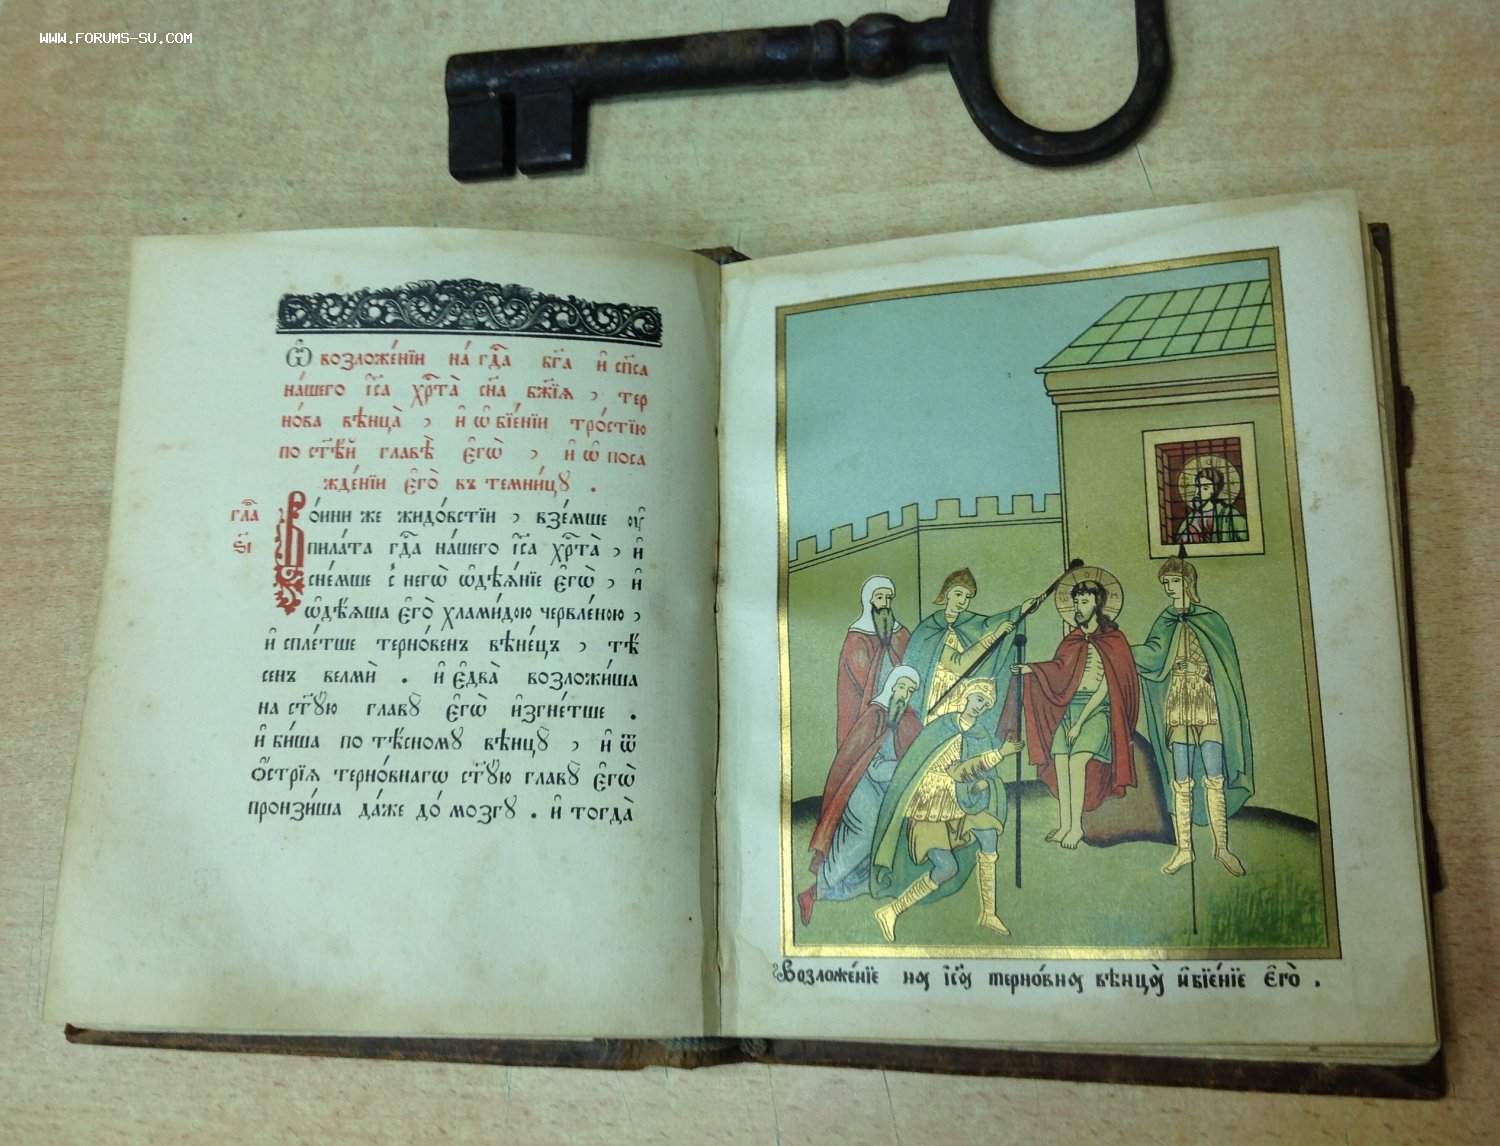 WWW.FORUMS-SU.COM
Ѽ возложе́нїи на́ гд҇а бг҃а и҆ сп҃са
на́шего і҆с҃а хрⷭ҇та̀ сн҃а бж҃їѧ , тер
но́ва вѣнца̀ , и҆ ѡ҆ бїе́нїи тро́стїю
по ст҃ѣ́й главѣ̀ є҆гѡ̀ , и҆ ѡ҆ поса
жде́нїи є҆го̀ въ темни́цꙋ .
гла҃
во́ини же жидо́встїи , взе́мше оу҆
пила́та гд҇а на́шего і҆с҃а хрⷭ҇та̀ , и҆
сне́мше с негѡ̀ ѡ҆дѣѧ́нїе є҆гѡ̀ , и҆
ѡ҆дѣ́ѧша є҆го̀ хлами́дою червле́ною ,
и҆ спле́тше терно́венъ вѣне́цъ , тѣ́
сенъ велмѝ . и҆ є҆два̀ возложи́ша
на ст҃ꙋ́ю главꙋ̀ є҆гѡ̀ и҆згне́тше .
и҆ би́ша по тѣ́сномꙋ вѣнцꙋ̀ , и҆ ѿ
ѻ҆́стрїѧ терно́внагѡ ст҃ꙋ́ю главꙋ̀ є҆гѡ̀
пронзи́ша да́же до́ мозгꙋ . и҆ тогда̀
Возложе́нїе на і҆с҃а терно́вна вѣнца̀ и҆ бїе́нїе є҆го̀ .